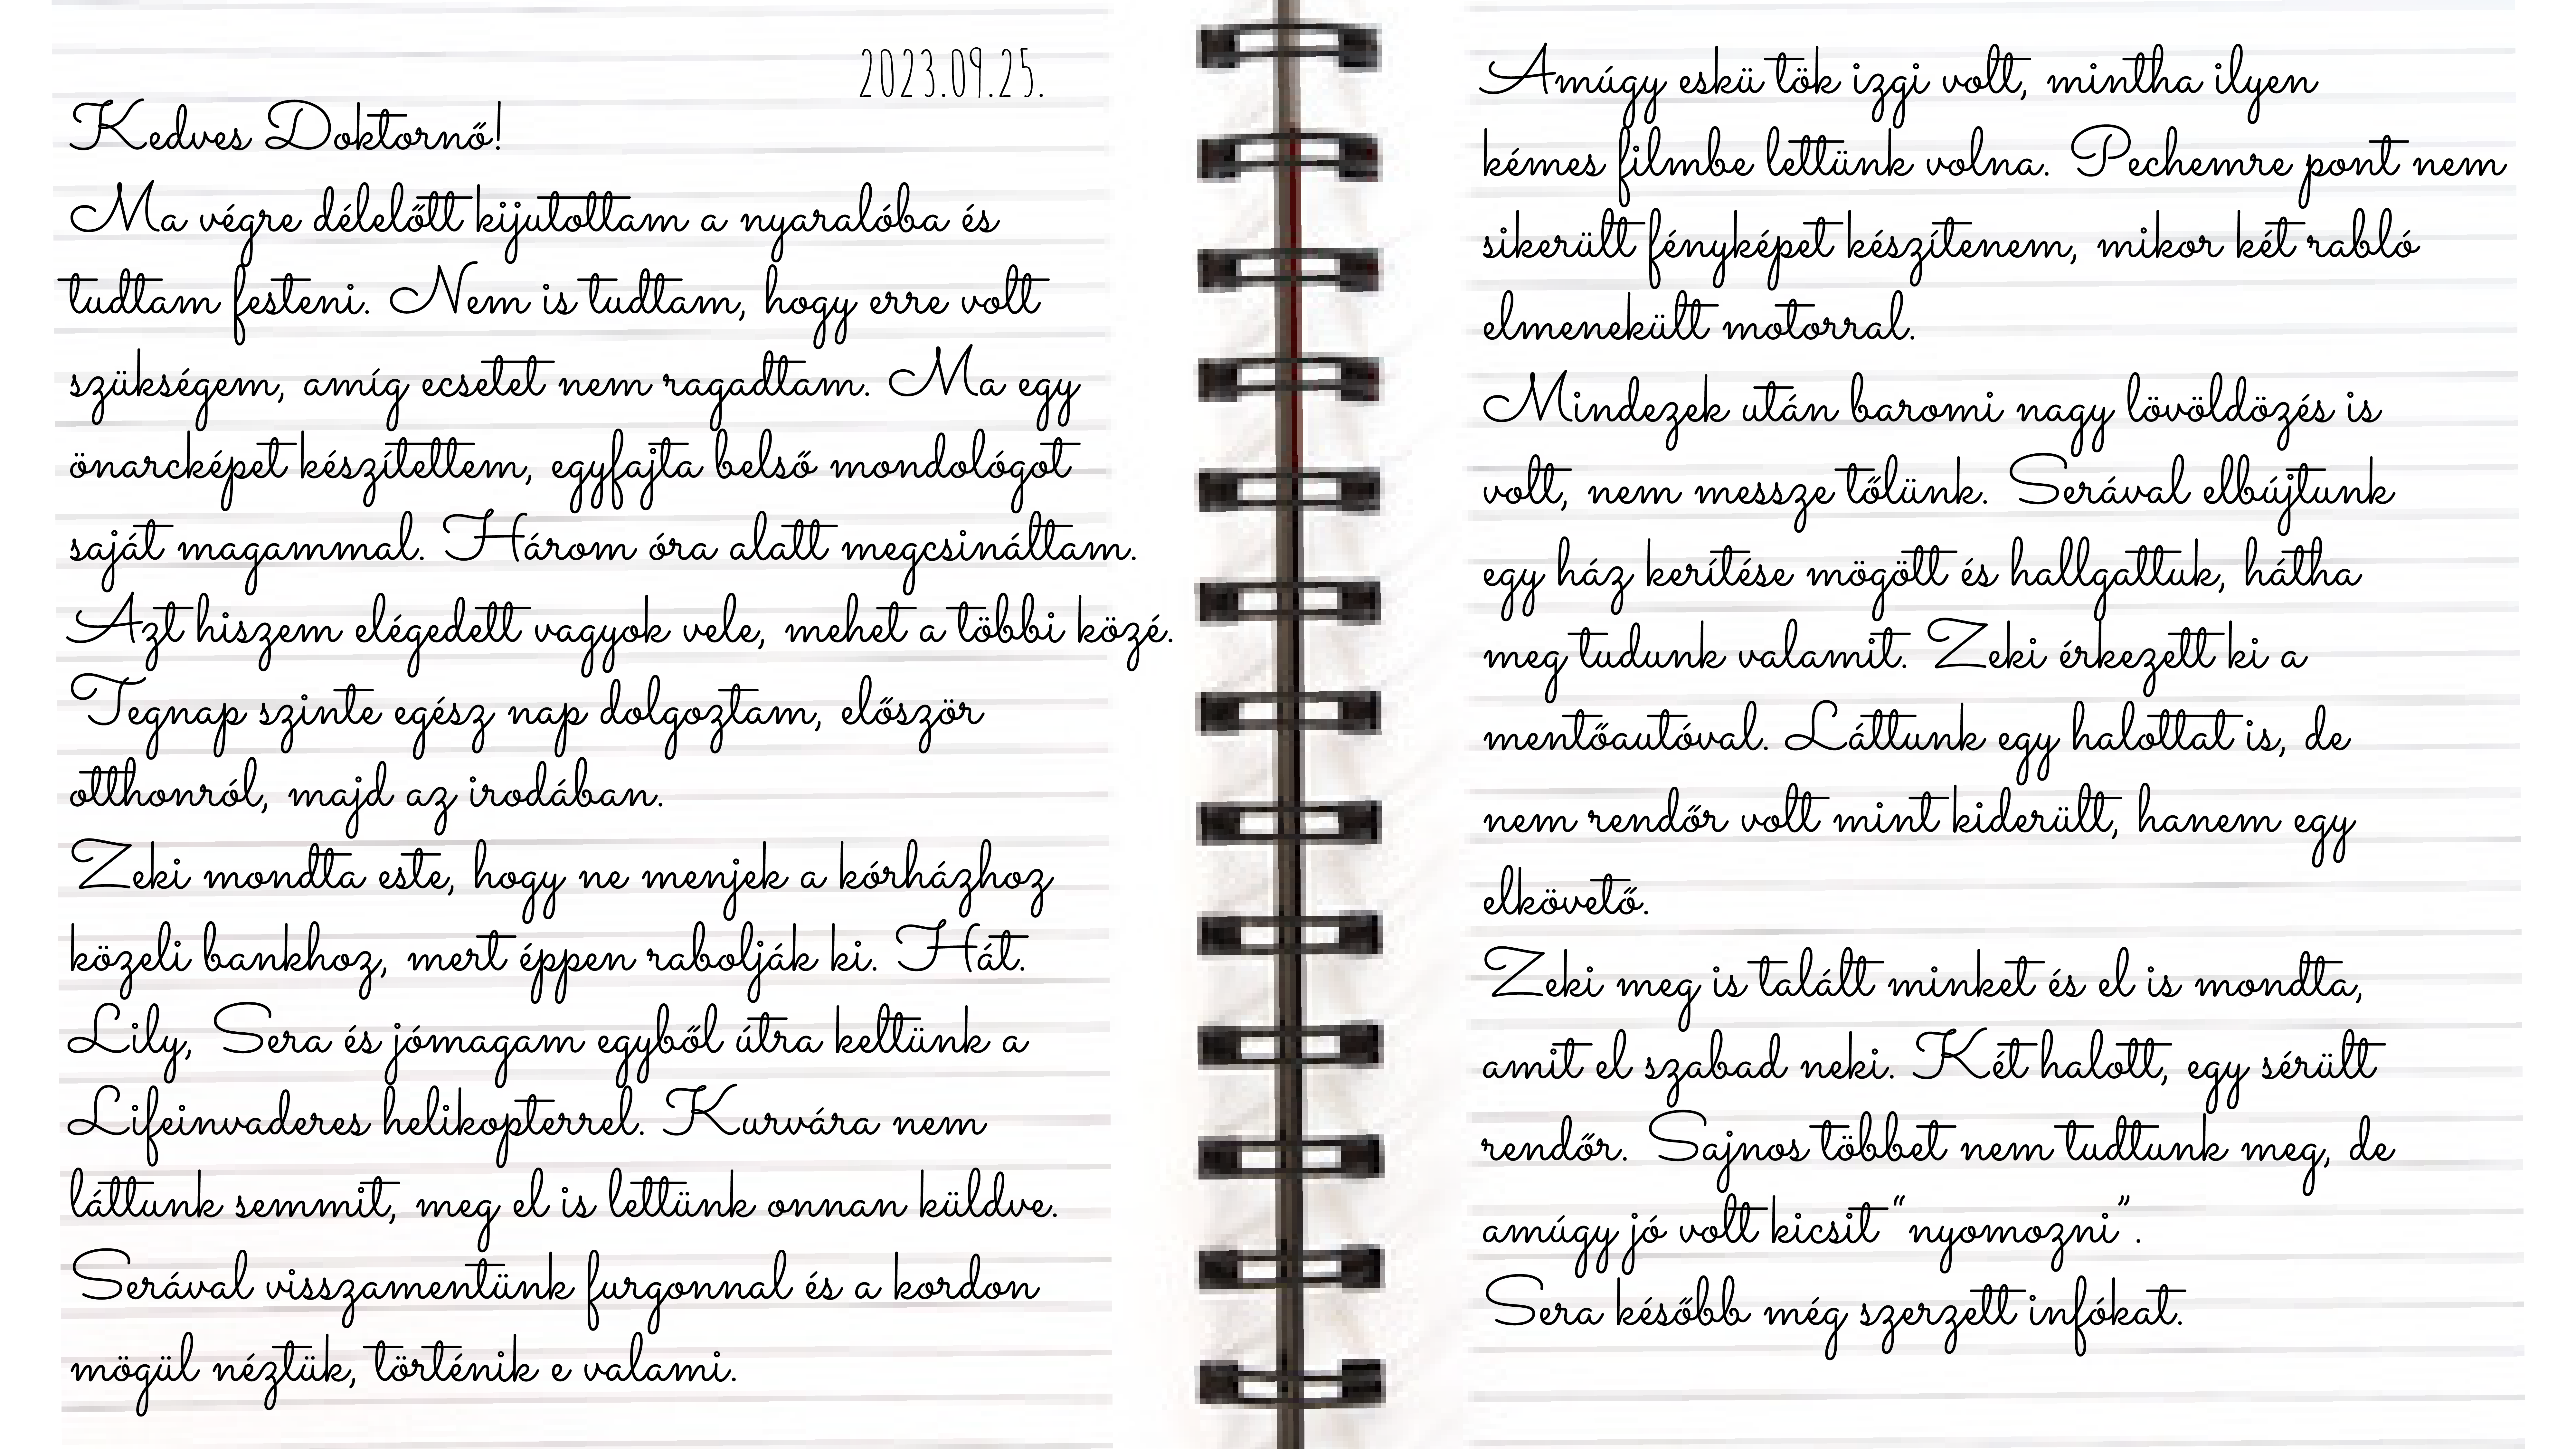 2023.09.25.
Kedves Doktornő!
Ma végre délelőtt kijutottam a nyaralóba és
tudtam festeni. Nem is tudtam, hogy erre volt
szükségem, amíg ecsetet nem ragadtam. Ma egy
önarcképet készítettem, egyfajta belső mondológot
saját magammal. Három óra alatt megcsináltam.
Azt hiszem elégedett vagyok vele, mehet a többi közé.
Tegnap szinte egész nap dolgoztam, először
otthonról, majd az irodában.
Zeki mondta este, hogy ne menjek a kórházhoz
közeli bankhoz, mert éppen rabolják ki. Hát.
Lily, Sera és jómagam egyből útra keltünk a
Lifeinvaderes helikopterrel. Kurvára nem
láttunk semmit, meg el is lettünk onnan küldve.
Serával visszamentünk furgonnal és a kordon
mögül néztük, történik e valami.
Amúgy eskü tök izgi volt, mintha ilyen
kémes filmbe lettünk volna. Pechemre pont nem
sikerült fényképet készítenem, mikor két rabló
elmenekült motorral.
Mindezek után baromi nagy lövöldözés is
volt, nem messze tőlünk. Serával elbújtunk
egy ház kerítése mögött és hallgattuk, hátha
meg tudunk valamit. Zeki érkezett ki a
mentőautóval. Láttunk egy halottat is, de
nem rendőr volt mint kiderült, hanem egy
elkövető.
Zeki meg is talált minket és el is mondta,
amit el szabad neki. Két halott, egy sérült
rendőr. Sajnos többet nem tudtunk meg, de
amúgy jó volt kicsit “nyomozni”.
Sera később még szerzett infókat.